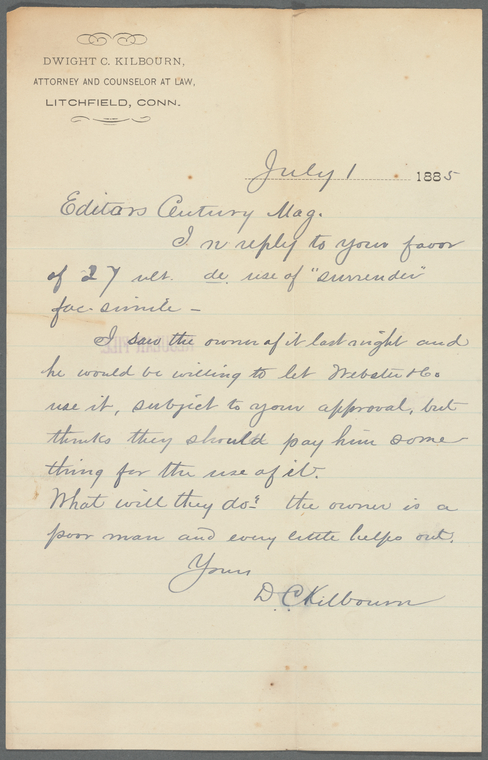 DWIGHT C. KILBOURN,
ATTORNEY AND COUNSELOR AT LAW,
LITCHFIELD, CONN.
July 1 1885
Editors Century Mag.
In reply to your favor
of 27 ult. de use of "surrender"
fac-simile –
I saw the owner of it last night and
he would be willing to let Webster & Co
use it, subject to your approval, but
thinks they should pay him some
thing for the use of it.
What will they do? the owner is a
poor man and every little helps out.
Yours
D. C. Kilbourn